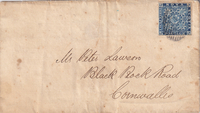 Mr Peter Lawson
Black Rock Road
Cornwallis